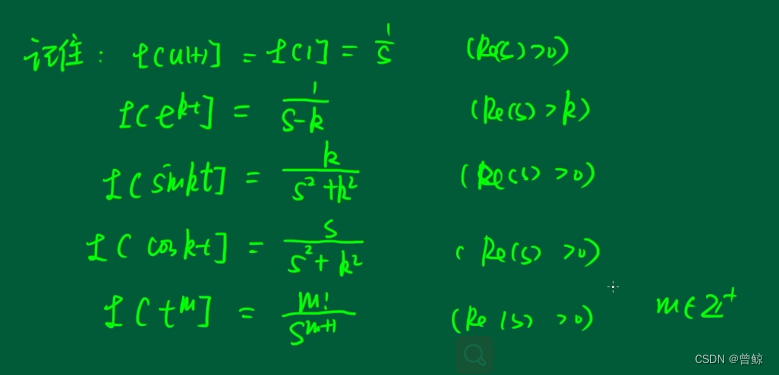 记住: ℒ[u(t)] = ℒ[1] = 1/s (Re(s)>0)
ℒ[e^{kt}] = 1/(s-k) (Re(s)>k)
ℒ[sinkt] = k/(s²+k²) (Re(s)>0)
ℒ[coskt] = s/(s²+k²) (Re(s)>0)
ℒ[t^m] = m!/s^{m+1} (Re(s)>0) m∈Z⁺
CSDN @曾鲸